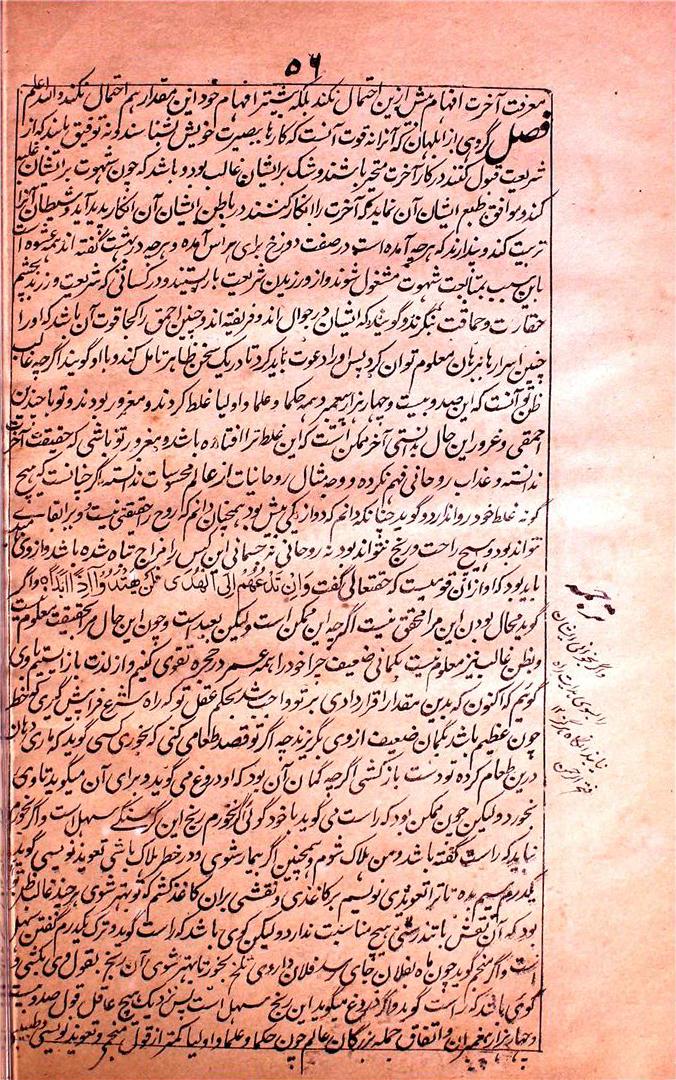 ۵۶
معرفت آخرت افهام بیش ازین احتمال نکند بلکه بیشتر افهام خود این مقدار هم احتمال نکند والله اعلم
فصل گروهی از ابلهان که آنرا نه قوت آنست که کارها ببصیرت خویش بشناسند و نه توفیق یابند که از
شریعت قبول کنند در کار آخرت متحیر باشند و شک بر ایشان غالب بود و باشد که چون شهوت بر ایشان غلبه
کند و موافق طبع ایشان آن نماید که آخرت را انکار کنند در باطن ایشان آن انکار پدید آید و شیطان آنرا
تربیت کند و پندارند که هرچه آمده است در صفت دوزخ برای هراس آمده و هرچه در بهشت گفته اند همه عشوه است
باین سبب بمتابعت شهوت مشغول شوند و از ورزیدن شریعت باز ایستند و در کسانی که شریعت ورزند بچشم
حقارت و حماقت نگرند و گویند که ایشان در جوال اند و فریفته اند و چنین احمق را کجا قوت آن باشد که او را
چنین اسرارها ببرهان معلوم توان کرد پس او را دعوت باید کرد تا در یک سخن ظاهر تامل کند و با او گویند اگرچه غالب
ظن تو آنست که این صد و بیست و چهار هزار پیغمبر و همه حکما و علما و اولیا غلط کردند و مغرور بودند و تو با چندین
احمقی و غرور این حال بدانستی آخر ممکن است که این غلط ترا افتاده باشد و مغرور تو باشی که حقیقت آخرت
ندانسته و عذاب روحانی فهم نکرده و وجه مثال روحانیات از عالم محسوسات ندانسته اگر چنانست که هیچ
گونه غلط خود روا ندارد و گوید چنانکه دانم که دو از یکی بیش بود همچنان دانم که روح را حقیقتی نیست و ویرا بقای
نتواند بود و هیچ راحت و رنج نتواند بود نه روحانی نه جسمانی این کس را مزاج تباه شده باشد و از وی
باید بود که او از آن قومیست که حقتعالی گفت وَاِنْ تَدْعُهُمْ اِلَی الْهُدٰی فَلَنْ یَهْتَدُوْا اِذًا اَبَدًا و اگر
گوید محال بودن این مرا محقق نیست اگرچه این ممکن است ولیکن بعید است و چون این حال مرا بحقیقت معلوم نیست
و بظن غالب نیز معلوم نیست بگمانی ضعیف چرا خود را همه عمر در حجره تقوی کنیم و از لذت باز ایستیم با وی
گویم که اکنون که بدین مقدار اقرار دادی بر تو واجب شد بحکم عقل تو که راه شرع فرا پیش گیری که خطر
چون عظیم باشد بگمان ضعیف از وی بگریزند چه اگر تو قصد طعامی کنی که بخوری کسی گوید که ماری دهان
درین طعام کرده تو دست باز کشی اگرچه گمان آن بود که او دروغ می گوید و برای آن میگوید تا وی
بخورد ولیکن چون ممکن بود که راست می گوید با خود گوئی اگر نخورم رنج این گرسنگی سهل است و اگر بخورم
نباید که راست گفته باشد و من هلاک شوم و همچنین اگر بیمار شوی و در خطر هلاک باشی تعویذ نویسی گوید
یکدرم سیم بده تا ترا تعویذی نویسم بر کاغذی و نقشی بران کاغذ کشم که تو بهتر شوی هرچند غالب ظن تو
بود که آن نقش با تندرستی هیچ مناسبت ندارد ولیکن گوی باشد که راست گوید و ترک یکدرم گفتن سهل
است و اگر منجم گوید چون ماه بفلان جای رسد فلان داروی تلخ بخور تا بهتر شوی آن رنج بقول وی بکشی و
گوی باشد که راست گوید و اگر دروغ میگوید این رنج سهل است پس نزدیک هیچ عاقل قول صد و بیست
و چهار هزار پیغمبران و اتفاق جمله بزرگان عالم چون حکما و علما و اولیا کمتر از قول منجمی و تعویذ نویسی و طبیبی
ترجمه
و اگر بخوانی ایشان
را بسوی هدایت راه
نیابند